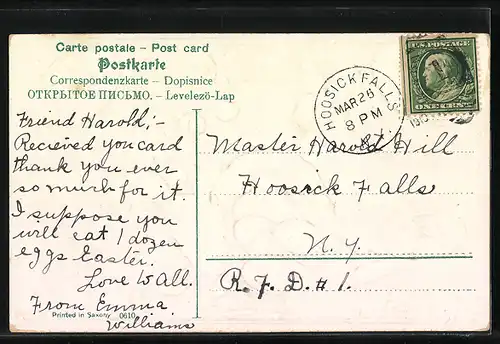 Carte postale – Post card
Postkarte
Correspondenzkarte – Dopisnice
ОТКРЫТОЕ ПИСЬМО. – Levelező-Lap
HOOSICK FALLS
MAR 28
8 PM
U.S. POSTAGE
ONE CENT
Friend Harold;-
Recieved you card
thank you ever
so much for it.
I suppose you
will eat 1 dozen
eggs Easter.
Love to all.
From Emma
Williams
Master Harold Hill
Hoosick Falls
N. Y.
R. F. D. # 1.
Printed in Saxony 0610